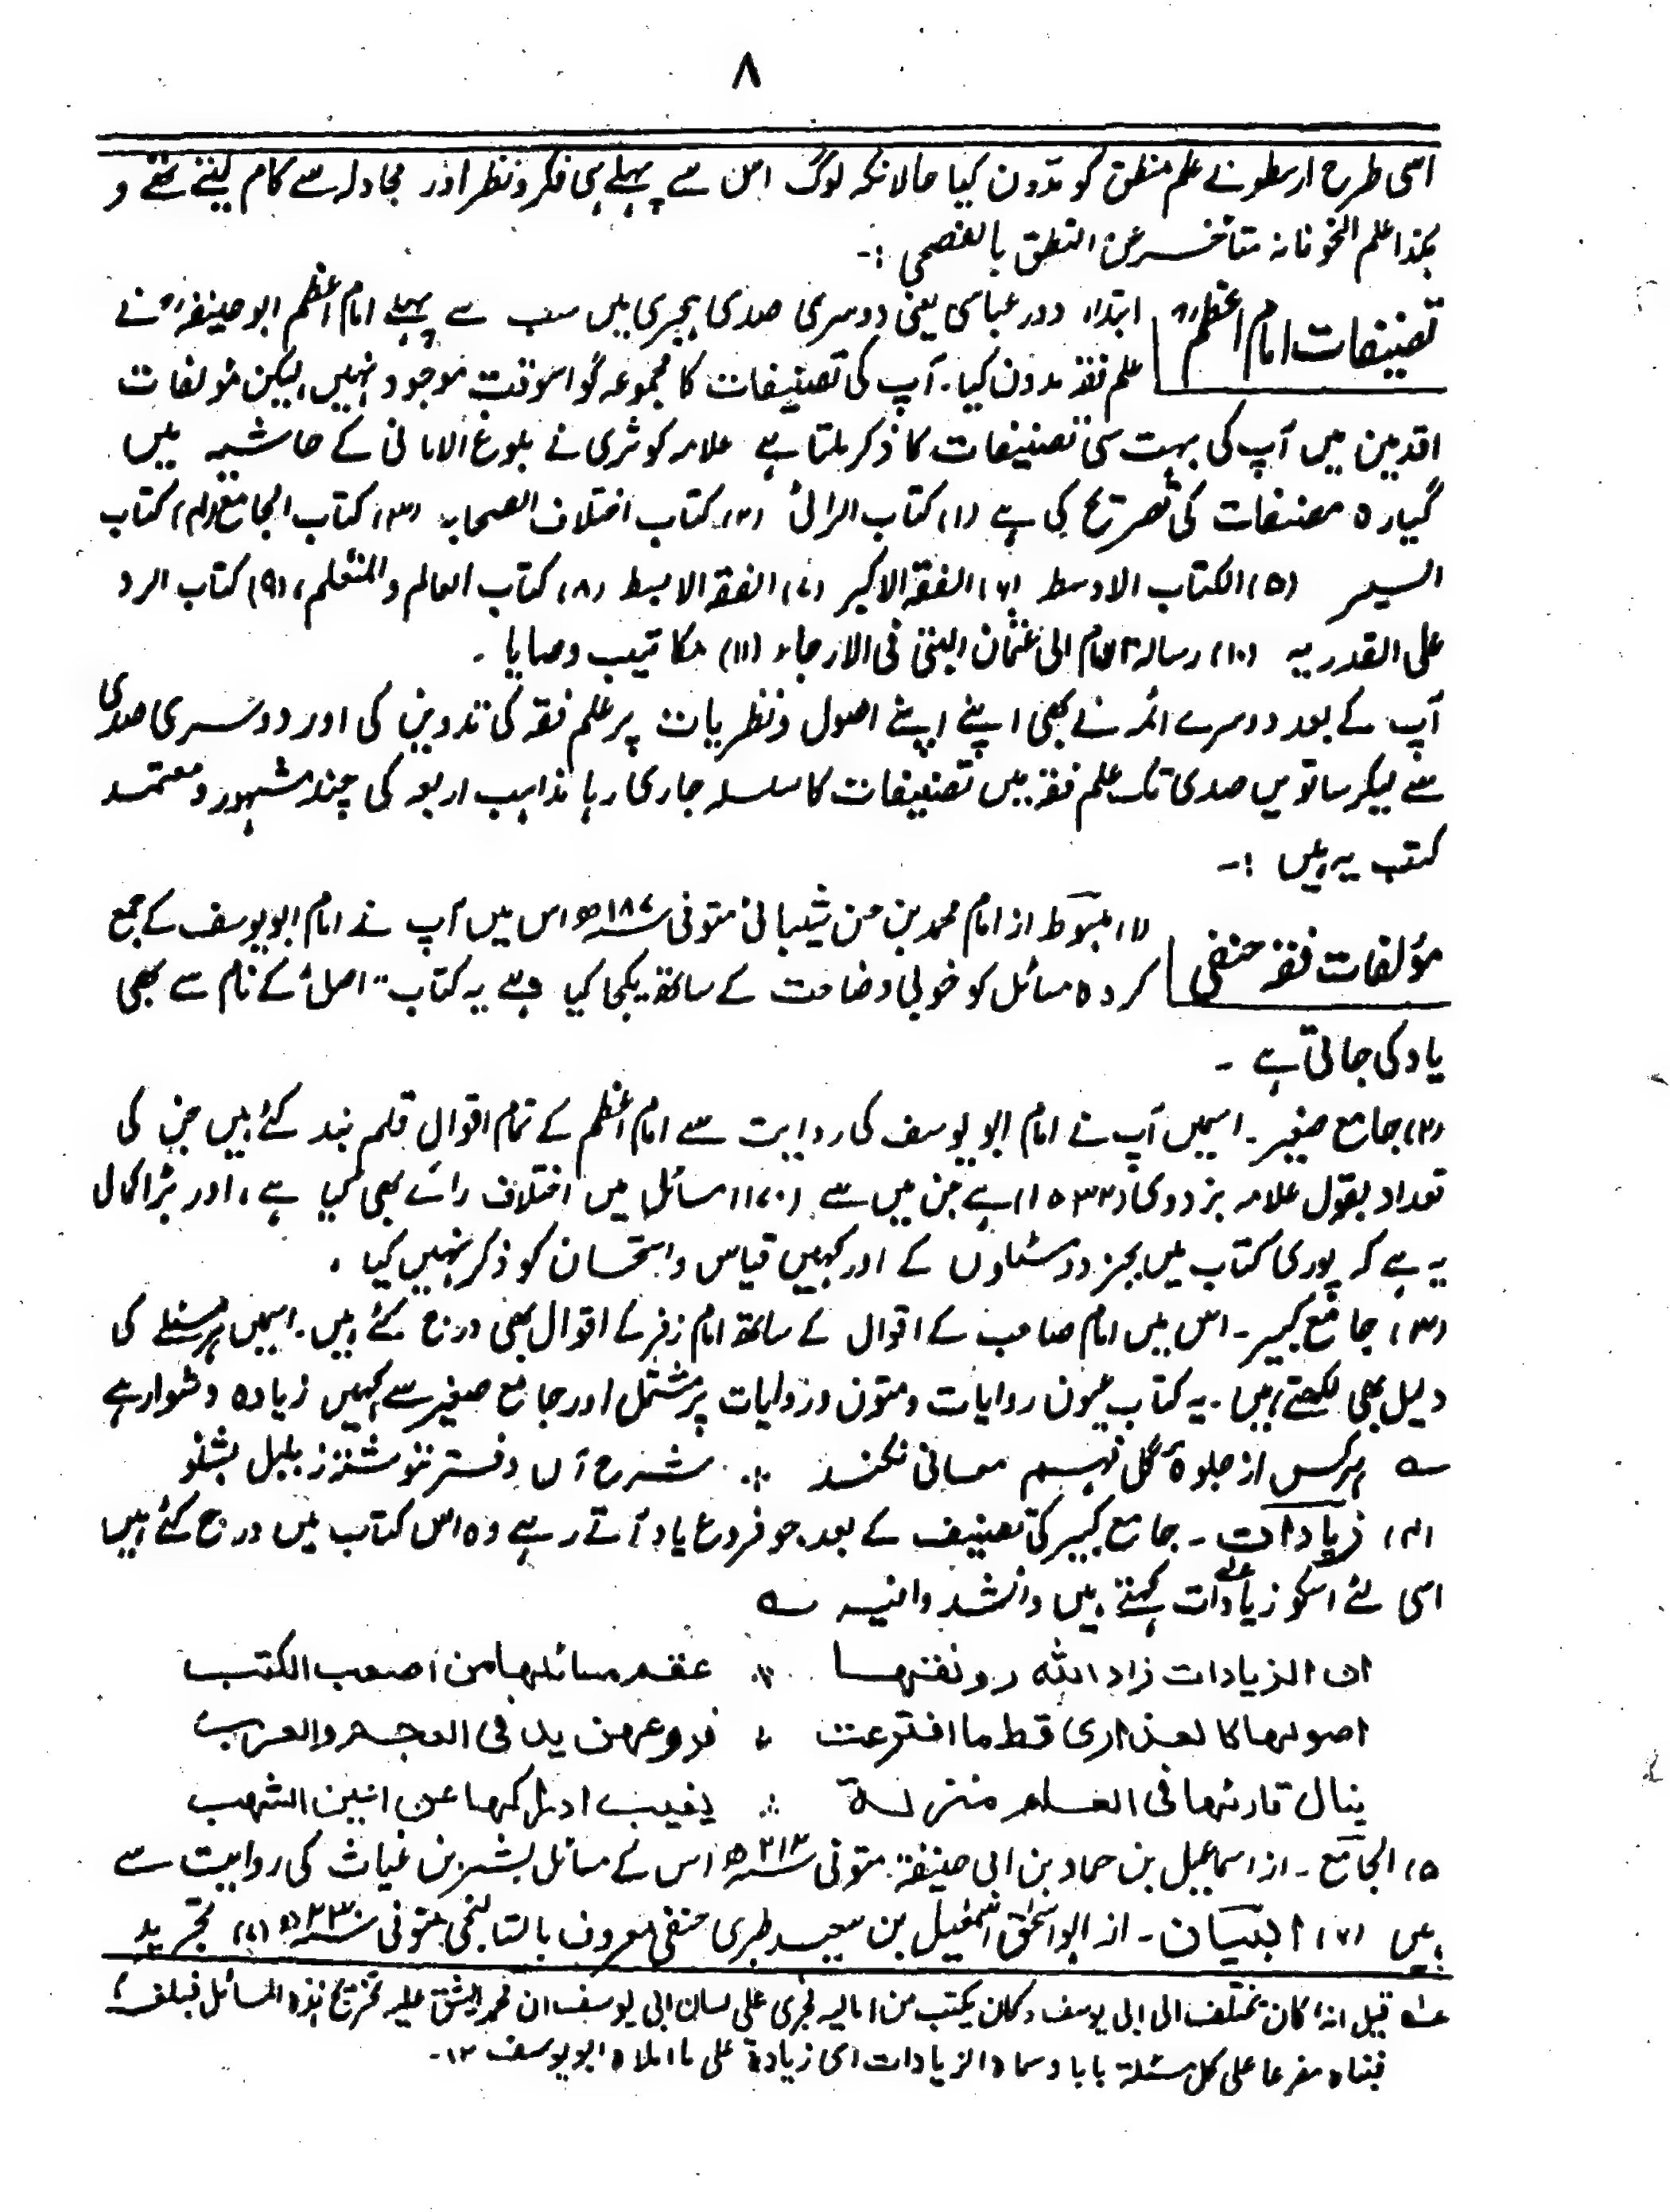 ۸
اسی طرح ارسطو نے علم منطق کو مدون کیا حالانکہ لوگ اس سے پہلے ہی فکر و نظر اور مجادلہ سے کام لیتے تھے و
ہکذا علم النحو فانہ متأخر عن النطق بالفصحی :-
تصنیفات امام اعظمؒ
ابتداء دور عباسی یعنی دوسری صدی ہجری میں سب سے پہلے امام اعظم ابو حنیفہؒ نے
علم فقہ مدون کیا۔ آپ کی تصنیفات کا مجموعہ گو اسوقت موجود نہیں، لیکن مؤلفات
اقدمین میں آپ کی بہت سی تصنیفات کا ذکر ملتا ہے علامہ کوثری نے بلوغ الامانی کے حاشیہ میں
گیارہ مصنفات کی تصریح کی ہے (۱) کتاب الرائ (۲) کتاب اختلاف الصحابہ (۳) کتاب الجامع (۴) کتاب
السیر (۵) الکتاب الاوسط (۶) الفقہ الاکبر (۷) الفقہ الابسط (۸) کتاب العالم والمتعلم، (۹) کتاب الرد
علی القدریہ (۱۰) رسالۃ الامام الی عثمان البتی فی الارجاء (۱۱) مکاتیب وصایا ۔
آپ کے بعد دوسرے ائمہ نے بھی اپنے اپنے اصول و نظریات پر علم فقہ کی تدوین کی اور دوسری صدی
سے لیکر ساتویں صدی تک علم فقہ میں تصنیفات کا سلسلہ جاری رہا مذاہب اربعہ کی چند مشہور و معتمد
کتب یہ ہیں :-
مؤلفات فقہ حنفی
(۱) مبسوط از امام محمد بن حسن شیبانیؒ متوفی ۱۸۷ھ اس میں آپ نے امام ابویوسف کے جمع
کردہ مسائل کو خوبی وضاحت کے ساتھ یکجا کیا ہے یہ کتاب "اصل" کے نام سے بھی
یاد کی جاتی ہے ۔
(۲) جامع صغیر۔ اسمیں آپ نے امام ابو یوسف کی روایت سے امام اعظم کے تمام اقوال قلم بند کئے ہیں جن کی
تعداد بقول علامہ بزدوی (۱۵۳۲) ہے جن میں سے (۱۷۰) مسائل میں اختلاف رائے بھی کیا ہے، اور بڑا کمال
یہ ہے کہ پوری کتاب میں بجز دو مسئلوں کے اور کہیں قیاس و استحسان کو ذکر نہیں کیا ۔
(۳) جامع کبیر۔ اس میں امام صاحب کے اقوال کے ساتھ امام زفر کے اقوال بھی درج کئے ہیں۔ اسمیں ہر مسئلے کی
دلیل بھی لکھتے ہیں۔ یہ کتاب عیون روایات و متون و روایات پر مشتمل اور جامع صغیر سے کہیں زیادہ دشوار ہے
؎ ہرکس از جلوۂ گل فہم معانی نکند ∴ شرح آں دفتر ننوشتہ ز بلبل بشنو
(۴) زیادات ۔ جامع کبیر کی تصنیف کے بعد جو فروع یاد آتے رہے وہ اس کتاب میں درج کئے ہیں
اسی لئے اسکو زیادات عہ کہتے ہیں وانشدوا فیہ ؎
ان الزیادات زاد اللہ رونقہا ∴ عقم مسائلہا من اصعب الکتب
اصولہا کالعذاری قط ما افترعت ∴ فروعہن ید فی العجم والعرب
ینال قارئہا فی العلم منزلۃ ∴ یغیب ادراکہا عن اعین الشہب
(۵) الجامع ۔ از اسماعیل بن حماد بن ابی حنیفۃ متوفی ۲۱۲ھ اس کے مسائل بشر بن غیاث کی روایت سے
ہیں (۶) البیان ۔ از ابو اسحٰق اسمٰعیل بن سعید طبری حنفی معروف بالشالنجی متوفی ۲۳۰ھ (۷) تجرید
عہ قیل انہ کان یختلف الی ابی یوسف وکان یکتب من امالیہ فجری علی لسان ابی یوسف ان محمد ایشق علیہ تخریج ہذہ المسائل فبلغہ
فبناہ مفرعا علی کل مسئلۃ بابا وسماہ الزیادات ای زیادۃ علی ما املاہ ابویوسف ۱۲۔